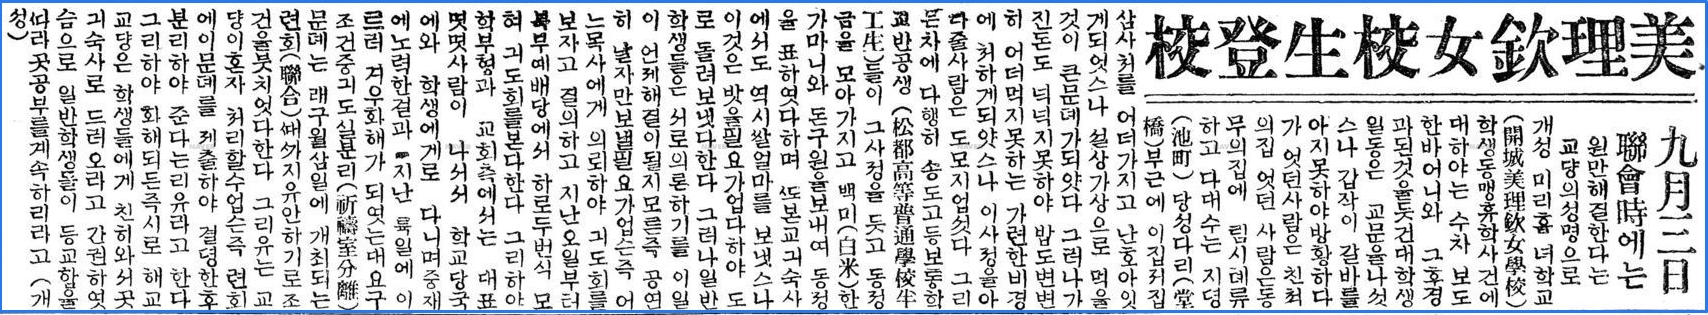 美理欽女校生登校
九月三日
聯會時에는
원만해결한다는
교댱의성명으로
개성 미리흠 녀학교
(開城美理欽女學校)
학생동맹휴학사건에
대하야는 수차 보도
한바어니와 그후경
과된것을듯건대학생
일동은 교문을나섯
스나 갑작이 갈바를
아지못하야방황하다
가 엇던사람은 친척
의집 엇던 사람은동
무의집에 림시데류
하고 다대수는 지뎡
(池町) 당성다리(堂
橋)부근에 이집저집
삼사처를 어더가지고 난호아잇
게되엇스나 설상가상으로 먹을
것이 큰문뎨가되얏다 그러나가
진돈도 넉넉지못하야 밥도변변
히 어더먹지못하는 가련한비경
에 처하게되얏스나 이사정을아
라줄사람은 도모지업섯다 그리
든차에 다행히 송도고등보통학
교반공생 (松都高等普通學校半
工生)들이 그사정을 듯고 동정
금을 모아가지고 백미(白米)한
가마니와 돈구원을보내여 동정
을 표하엿다하며 또본교긔숙사
에서도 역시쌀얼마를 보냇스나
이것은 밧을필요가업다하야 도
로 돌려보냇다한다 그러나일반
학생들은 서로의론하기를 이일
이 언제해결이될지모른즉 공연
히 날자만보낼필요가업슨즉 어
는목사에게 의뢰하야 긔도회를
보자고 결의하고 지난오일부터
북부예배당에서 하로두번식 모
혀 긔도회를본다한다 그리하야
학부형과 교회측에서는 대표
몃몃사람이 나서서 학교당국
에와 학생에게로 다니며중재
에노력한결과 지난 륙일에 이
르러 겨우화해가 되엿는대요구
조건중긔도실분리(祈禱室分離)
문뎨는 래구월삼일에 개최되는
련회(聯合)때까지유안하기로조
건을붓치엇다한다 그리유는 교
댱이혼자 처리할수업슨즉 련회
에이문뎨를 뎨출하야 결뎡한후
분리하야 준다는리유라고 한다
그리하야 화해되든즉시로 해교
교댱은 학생들에게 친히와서곳
긔숙사로 드러오라고 간권하엿
슴으로 일반학생들이 등교함을
따라곳공부를계속하리라고 (개
성)